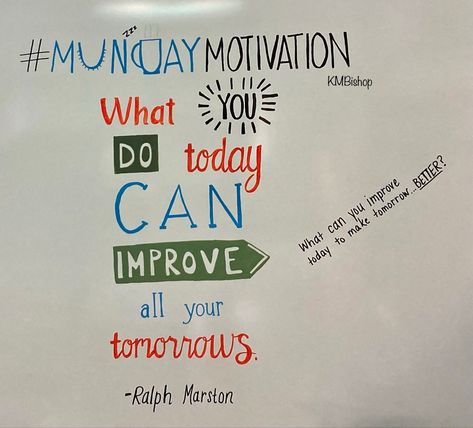 zzz
#MUNDAY MOTIVATION
KMBishop
What YOU
DO today
CAN
IMPROVE
all your
tomorrows.
-Ralph Marston
What can you improve
today to make tomorrow...BETTER?